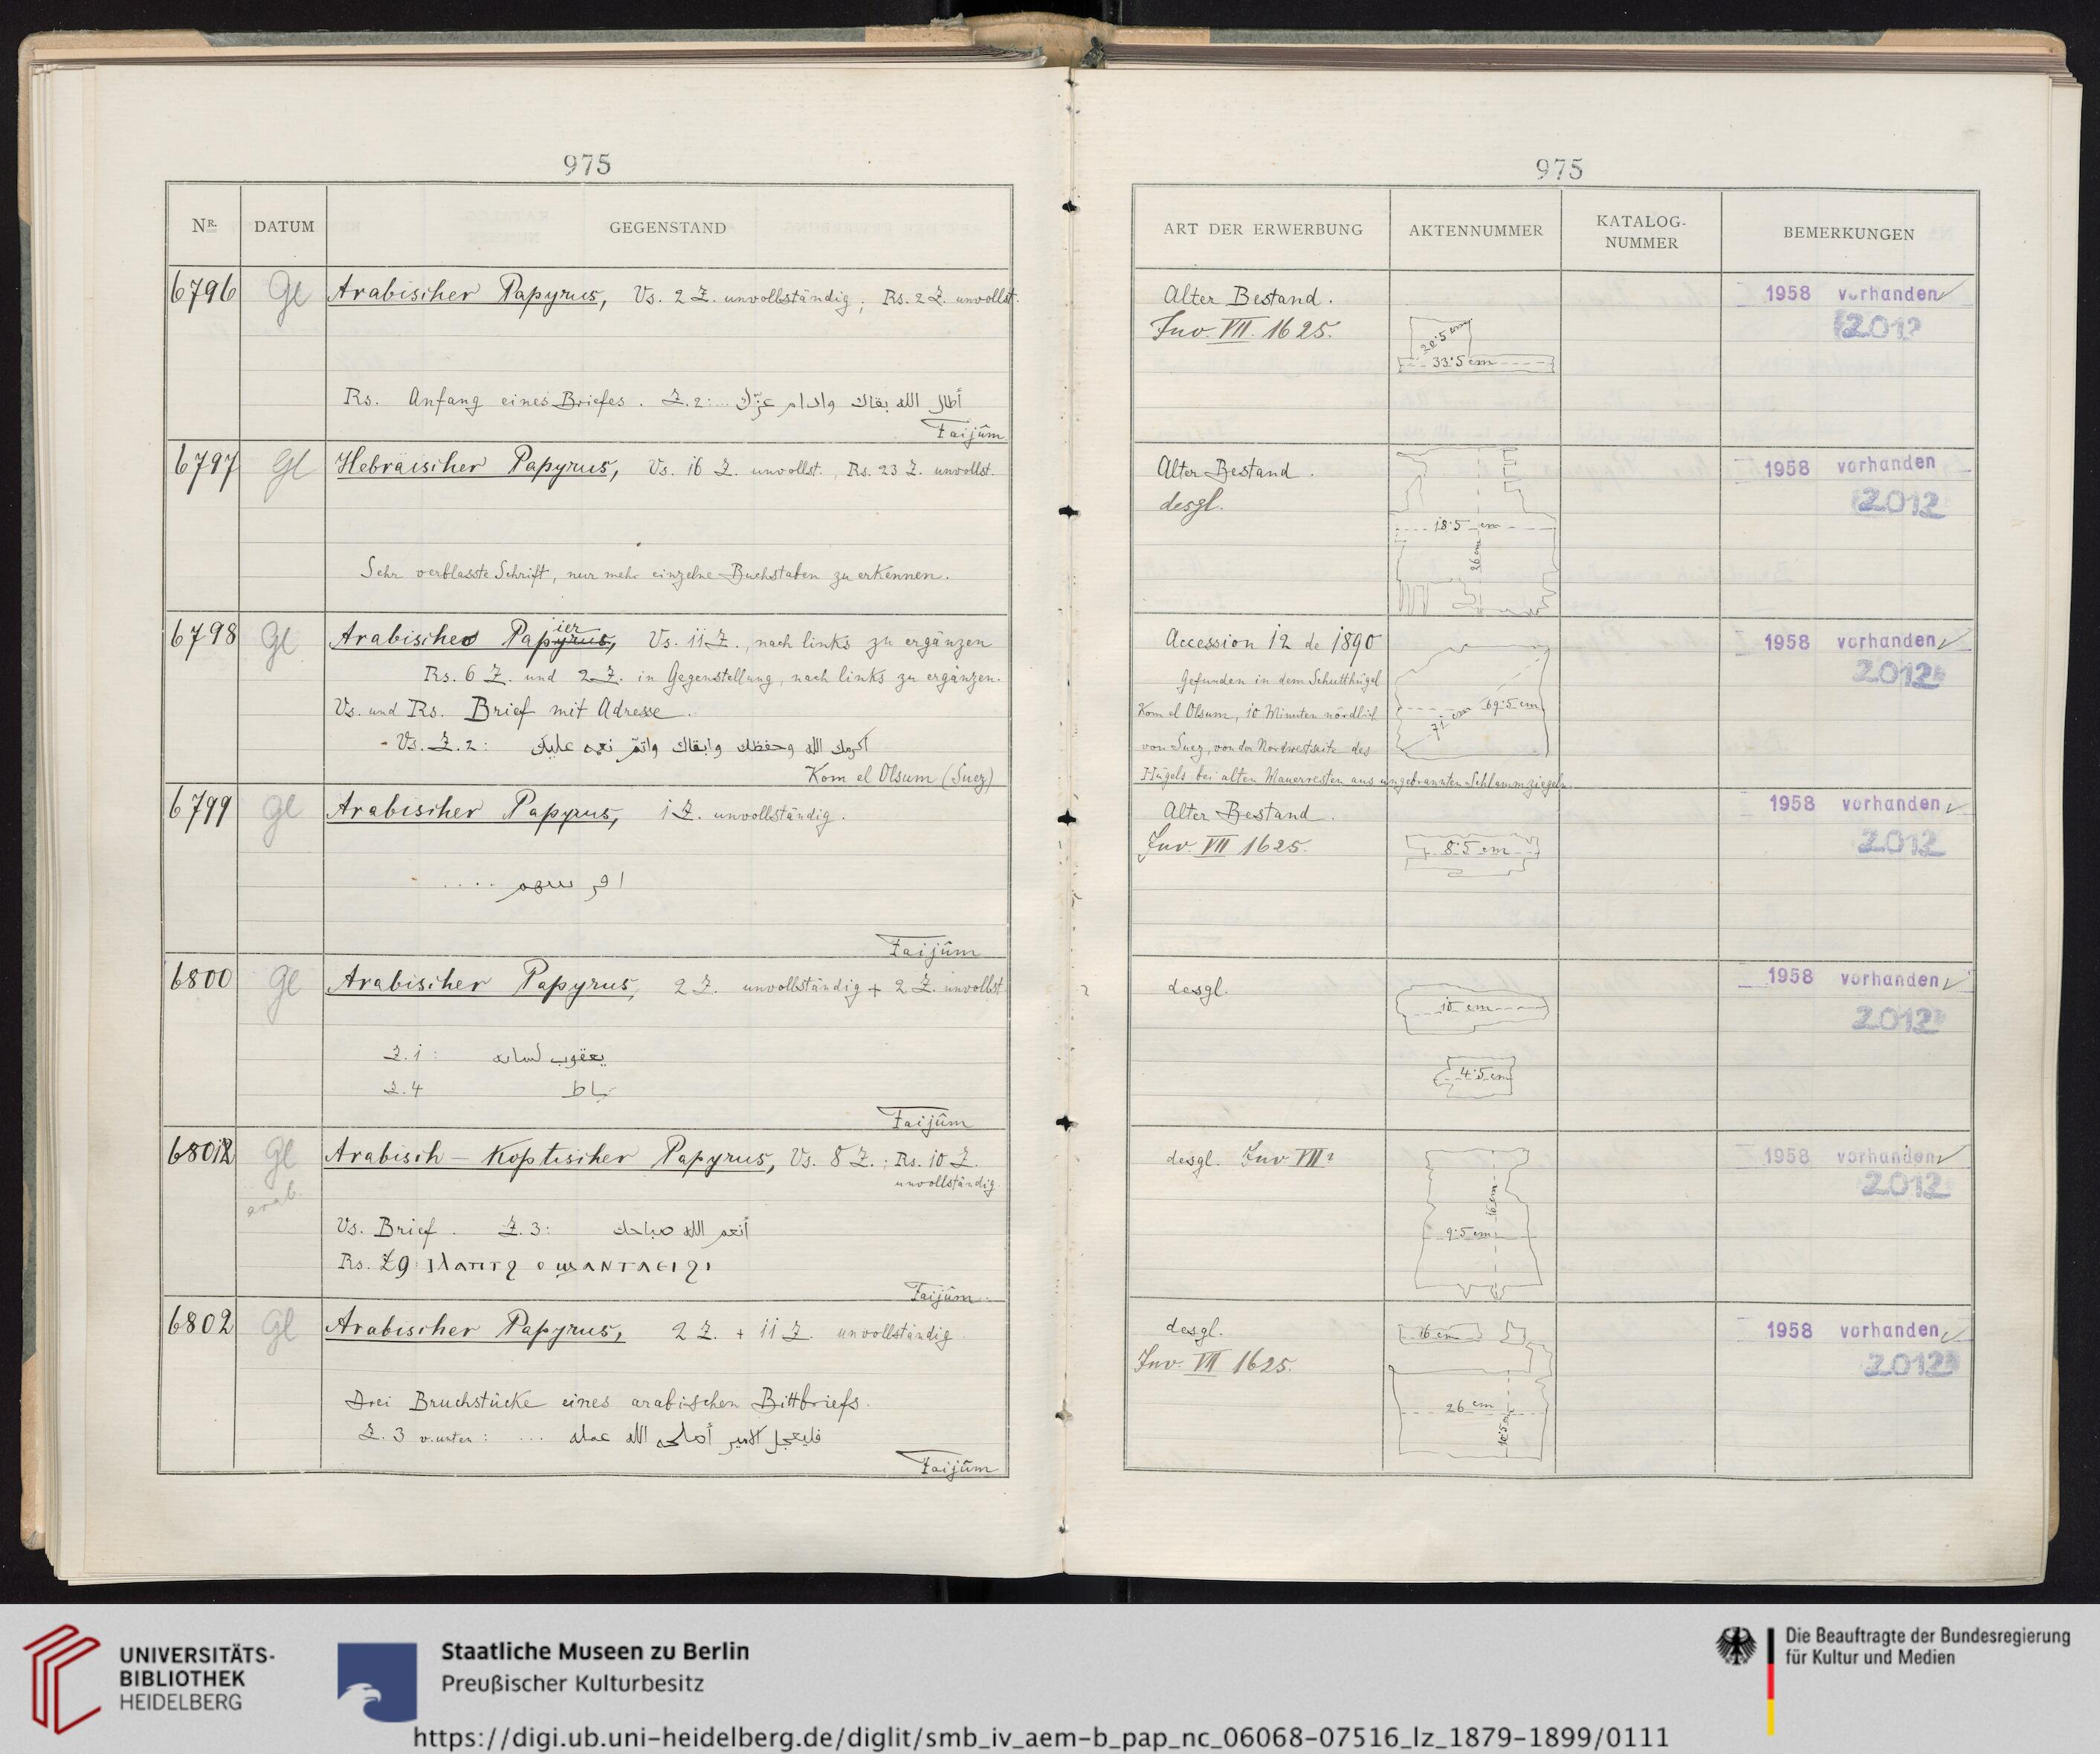 975
Nr. DATUM GEGENSTAND
6796 Gl Arabischer Papyrus, Vs. 2 Z. unvollständig; Rs. 2 Z. unvollst.
Rs. Anfang eines Briefes. Z. 2: ... أطال الله بقاك وادام عزّك
Faijûm
6797 Gl Hebräischer Papyrus, Vs. 16 Z. unvollst., Rs. 23 Z. unvollst.
Sehr verblasste Schrift, nur mehr einzelne Buchstaben zu erkennen.
6798 Gl Arabisches Papier, Vs. 11 Z., nach links zu ergänzen
Rs. 6 Z. und 2 Z. in Gegenstellung, nach links zu ergänzen.
Vs. und Rs. Brief mit Adresse.
Vs. Z. 2: اكرمك الله وحفظك وابقاك واتمّ نعمه عليك
Kom el Olsum (Suez)
6799 Gl Arabischer Papyrus, 1 Z. unvollständig.
Faijûm
6800 Gl Arabischer Papyrus, 2 Z. unvollständig + 2 Z. unvollst.
Z. 1: يعقوب لسانه
Z. 4
Faijûm
6801 Gl Arabisch-Koptischer Papyrus, Vs. 8 Z.; Rs. 10 Z.
arab. unvollständig.
Vs. Brief. Z. 3: أنعم الله صباحك
Rs. Z 9:
Faijûm.
6802 Gl Arabischer Papyrus, 2 Z. + 11 Z. unvollständig
Drei Bruchstücke eines arabischen Bittbriefs.
Z. 3 v. unten: ... فليعجل الامير أصلحه الله عمله
Faijûm
975
ART DER ERWERBUNG AKTENNUMMER KATALOG-NUMMER BEMERKUNGEN
Alter Bestand. 1958 vorhanden
Inv. VII. 1625. 20·5 cm 2012
33·5 cm
Alter Bestand. 1958 vorhanden
desgl. 2012
18·5 cm
26 cm
Accession 12 de 1890 1958 vorhanden
Gefunden in dem Schutthügel 2012
Kom el Olsum, 10 Minuten nördlich 71 cm 69·5 cm
von Suez, von der Nordwestseite des
Hügels bei alten Mauerresten aus ungebrannten Schlammziegeln.
Alter Bestand. 1958 vorhanden
Inv. VII 1625. 8·5 cm 2012
desgl. 1958 vorhanden
10 cm 2012
4·5 cm
desgl. Inv VII? 1958 vorhanden
16 cm 2012
9·5 cm
desgl. 16 cm 1958 vorhanden
Inv. VII 1625. 2012
26 cm
10·5 cm
UNIVERSITÄTS-
BIBLIOTHEK
HEIDELBERG
Staatliche Museen zu Berlin
Preußischer Kulturbesitz
Die Beauftragte der Bundesregierung
für Kultur und Medien
https://digi.ub.uni-heidelberg.de/diglit/smb_iv_aem-b_pap_nc_06068-07516_lz_1879-1899/0111